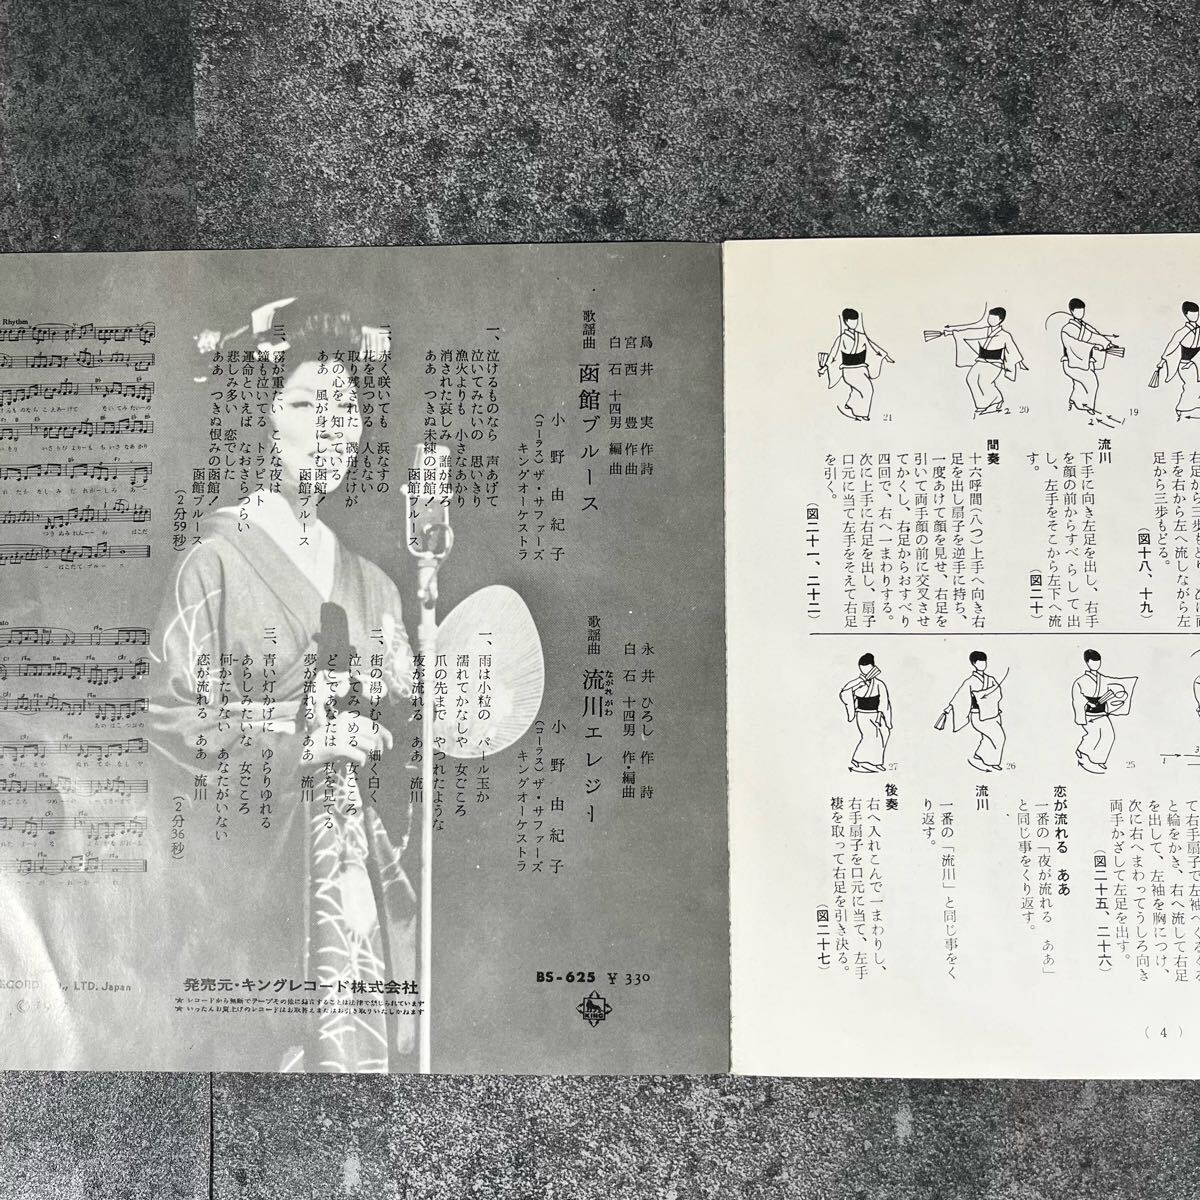 鳥井 実 作詩
宮西 豊 作曲
白石十四男 編曲
歌謡曲 函館ブルース
小野由紀子
(コーラス) ザ・サファーズ
キングオーケストラ
一、泣けるものなら 声あげて
泣いてみたいの 思いきり
漁火よりも 小さなあかり
消された哀しみ 誰が知ろ
ああ つきぬ未練の函館!
函館ブルース
二、赤く咲いても 浜なすの
花を見つめる 人もない
取り残された 磯舟だけが
女の心を 知っている
ああ 風が身にしむ函館!
函館ブルース
三、霧が重たい こんな夜は
鐘も泣いてる トラピスト
運命といえば なおさらつらい
悲しみ多い 恋でした
ああ つきぬ恨みの函館!
函館ブルース
(2分59秒)
永井ひろし 作詩
白石十四男 作・編曲
歌謡曲 流川エレジー
ながれがわ
小野由紀子
(コーラス) ザ・サファーズ
キングオーケストラ
一、雨は小粒の パール玉か
濡れてかなしや 女ごころ
爪の先まで やつれたような
夜が流れる ああ 流川
二、街の湯けむり 細く白く
泣いてみつめる 女ごころ
どこであなたは 私を見てる
夢が流れる ああ 流川
三、青い灯かげに ゆらりゆれる
あらしみたいな 女ごころ
何かたりない あなたがいない
恋が流れる ああ 流川
(2分36秒)
Rhythm
ECORD CO., LTD. Japan
発売元・キングレコード株式会社
★レコードから無断でテープその他に録音することは法律で禁じられています
★いったんお買上げのレコードはお取替えまたはお引き取りいたしかねます
BS-625 ¥330
KING
21
20
19
足から三歩もどる。
(図十八、十九)
流川
下手に向き左足を出し、右手
を顔の前からすべらして出
し、左手をそこから左下へ流
す。
(図二十)
間奏
十六呼間(八つ)上手へ向き右
足を出し扇子を逆手に持ち、
一度あけて顔を見せ、右足を
引いて両手顔の前に交叉させ
てかくし、右足からおすべり
四回で、右へ一まわりする。
次に上手に右足を出し、扇子
口元に当て左手をそえて右足
を引く。
(図二十一、二十二)
27
26
25
と輪をかき、右へ流して右足
を出して、左袖を胸につけ、
次に右へまわってうしろ向き
両手かざして左足を出す。
(図二十五、二十六)
恋が流れる ああ
一番の「夜が流れる ああ」
と同じ事をくり返す。
流川
一番の「流川」と同じ事をく
り返す。
後奏
右へ入れこんで一まわりし、
右手扇子を口元に当て、左手
褄を取って右足を引き決る。
(図二十七)
(4)